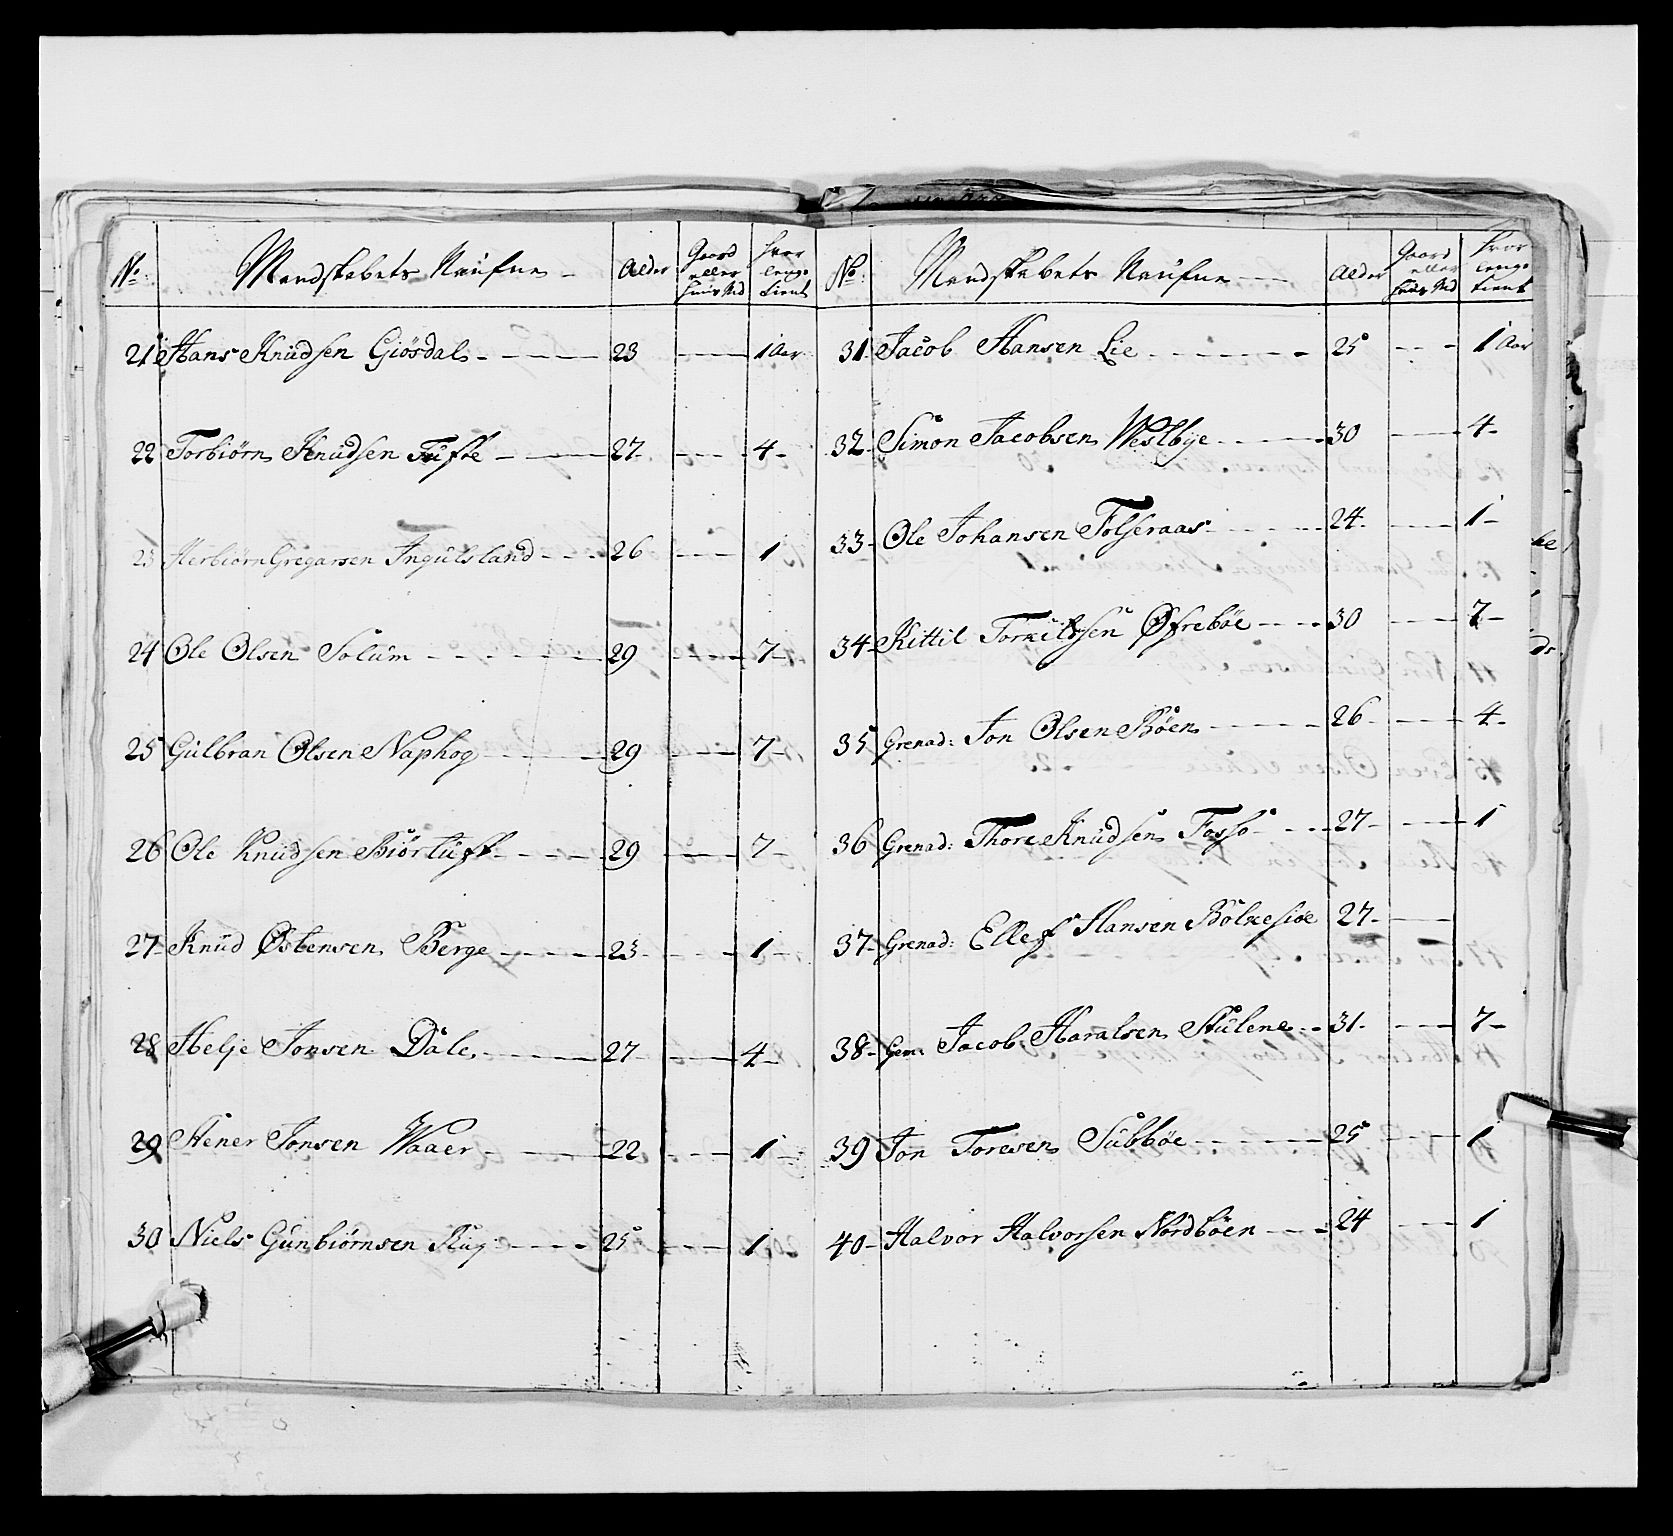 No: Mandskabets Naufne - Alder Gaard eller Huus Md hvor lenge tient
21 Hans Knudsen Giösdal - 23 - 1 Aar
22 Torbiörn Knudsen Tufte - 27 - 4 -
23 Herbiörn Gregarsen Ingulsland - 26 - 1
24 Ole Olsen Solum - 29 - 7 -
25 Gulbran Olsen Naphog - 29 - 7 -
26 Ole Knudsen Biörtuft - 29 - 7 -
27 Knud Østensen Berge - 23 - 1 -
28 Helje Jonsen Dale - 27 - 4 -
29 Stener Jonsen Waaer - 22 - 1 -
30 Niels Gunbiörnsen Rug - 25 - 1 -
No: Mandskabets Naufne - Alder Gaard eller Huus Md hvor lenge tient
31 Jacob Hansen Lie - 25 - 1 Aar
32 Simon Jacobsen Westbye - 30 - 4 -
33 Ole Johansen Folseraas - 24 - 1 -
34 Kittil Torkilssen Øfreböe - 30 - 7 -
35 Grenad: Jon Olsen Böen - 26 - 4 -
36 Grenad: Thore Knudsen Fosso - 27 - 1
37 Grenad: Ellef Hansen Bölkesiöe 27 -
38 Gren: Jacob Haralsen Stulene - 31 - 7 -
39 Jon Toresen Subböe - 25 - 1
40 Halvor Halvorsen Nordböen - 24 - 1